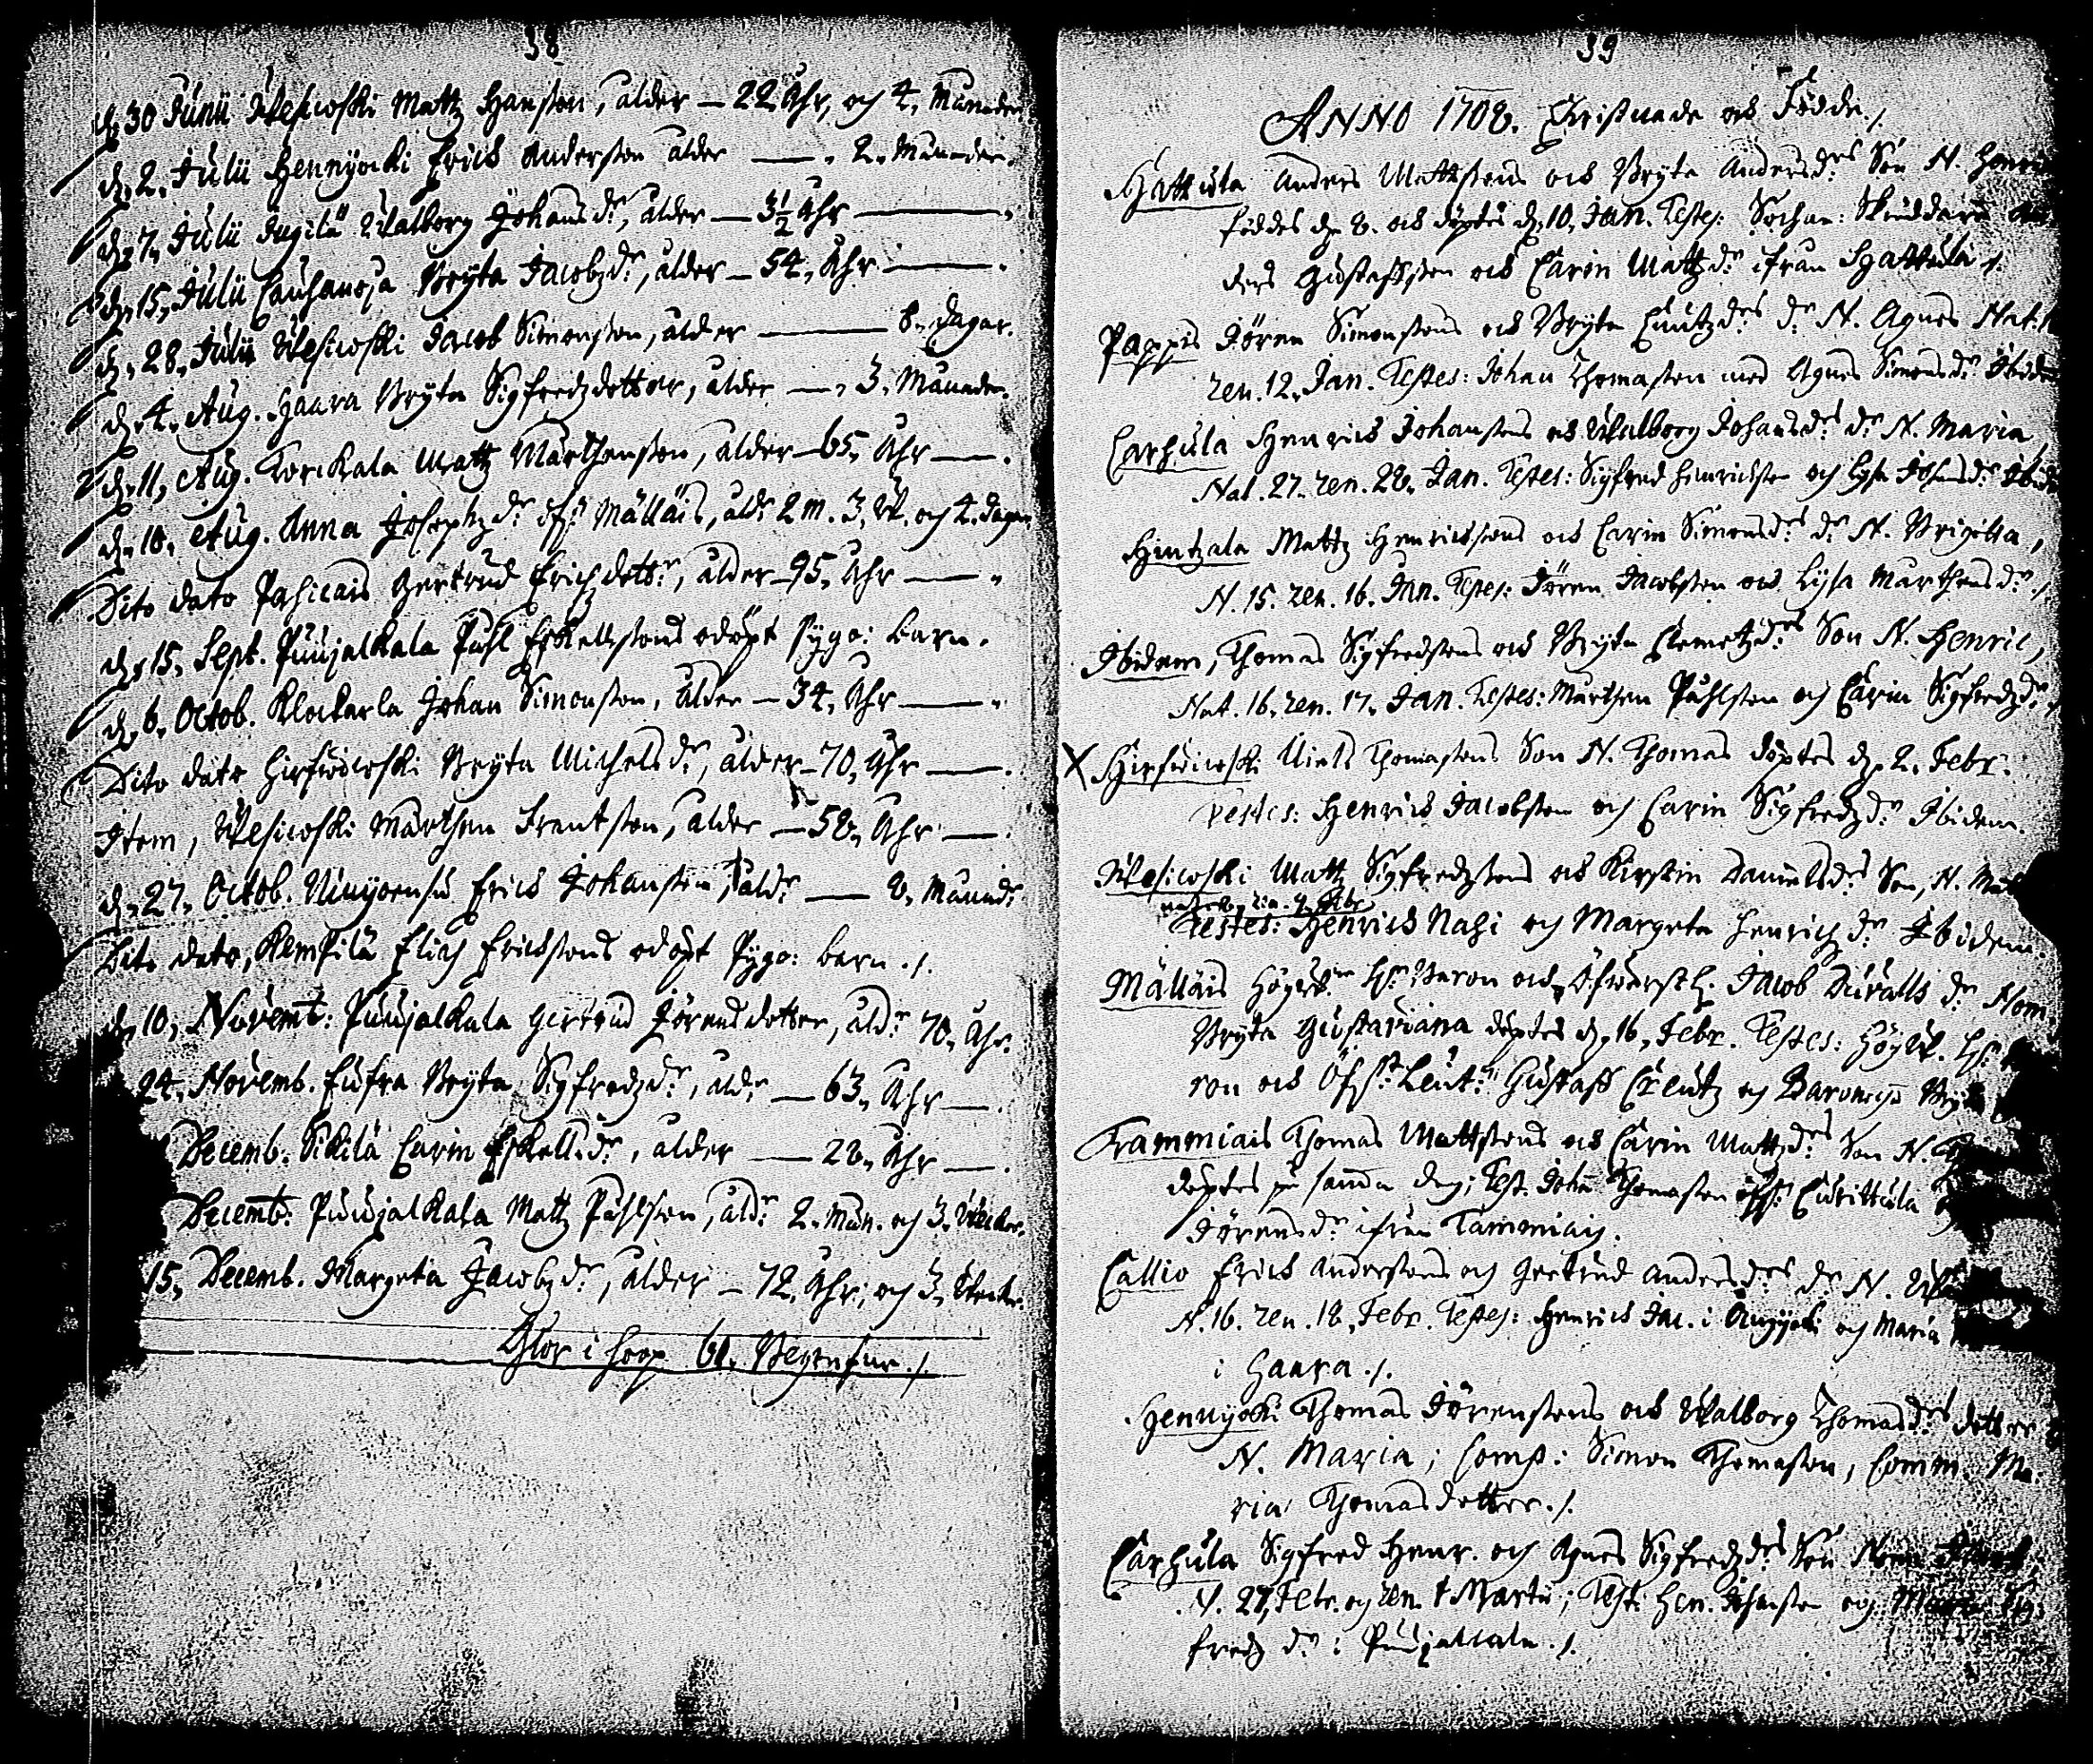 38
d. 30 Junii Wesicoski Mattz Hansson, ålder – 22. Åhr, och 4. Månader
d. 2. Julii Hennijocki Erich Andersson ålder — 2. Månader.
d. 7. Julii Walborg Johansdr, ålder – 3½ Åhr —
d. 15. Julii Cauhanoja Bryta Jacobzdr, ålder – 54. Åhr —
d. 28. Julii Wesicoski Jacob Simonsson, ålder — 8. dagar.
d. 4. Aug. Haara Bryta Sigfredzdotter, ålder — 3. Månader.
d. 11. Aug. Torckala Mattz Mårthensson, ålder – 65. Åhr —
d. 18. Aug. Anna Josephzdr Mälläis, åldr 2 m. 3. W. och 4. dagar
Dito dato Pahicais Gertrud Erichdottr, ålder – 95. Åhr —
d. 15. Sept. Puujalkala Påhl Eskellssons odöpt pygo: barn.
d. 6. Octob. Klockarla Johan Simonsson, ålder – 34. Åhr —
Dito dato Hirswicoski Bryta Michelsdr, ålder – 70. Åhr —
Item, Wesicoski Mårthen Frantsson, ålder – 58. Åhr —
d. 27. Octob. Erich Johansson, åldr — 8. Månadr
Dito dato, Kempilä Elich Erichssons odöpt Pygo: barn ./.
d. 10. Novemb: Puujalkala Gertrud Jörensdotter, åldr 70. Åhr.
24. Novemb. Eufra Bryta Sigfredzdr, åldr — 63. Åhr —
Decemb. Sikilä Carin Eskellsdr, ålder — 28. Åhr —
Decemb: Puujalkala Mattz Påhlsson, åldr 2. Mån. och 3. Weckor.
15. Decemb. Margeta Jacobzdr, ålder – 72. Åhr, och 3. Weckor.
i hoop 61. ./.
39
ANNO 1708. Christnade och Födde ./.
Hattula Anders Mattssons och Bryta Andersdrs Son N. Henric
föddes d. 8. och döptes d. 10. Jan. Testes: Sochn: Skruddare An
ders Gustaffsson och Carin Mattzdr ifrån Hattula ./.
Pappis Jören Simonssons och Bryta Cnutzdrs dr N. Agnes Nat.
ren. 12. Jan. Testes: Johan Thomasson med Agnes Simonsdr Ibidem
Carhula Henrich Johanssons och Walborg Johansdrs dr N. Maria
Nat. 27. ren. 28. Jan. Testes: Sigfred Hinrichsson och Lysa Johansdr Ibid
Hintzala Mattz Henrichssons och Carin Simonsdrs dr N. Brigitta,
N. 15. ren. 16. Jan. Testes: Jören Jacobsson och Lysa Mårthensdr ./.
Ibidem, Thomas Sigfredssons och Bryta Clemetzdrs Son N. Henric,
Nat. 16. ren. 17. Jan. Testes: Mårthen Påhlsson och Carin Sigfredzdr ./.
X Hirswicoski Niels Thomassons Son N. Thomas döptes d. 2. Febr.
Testes: Henrich Jacobsson och Carin Sigfredzdr Ibidem.
Wesicoski Mattz Sigfredzssons och Kirstin Danielsdrs Son, N.
ren. 9. Febr
Testes: Henrich Nasi och Margeta Henrichzdr Ibidem.
Mälläis Högwb. Hr Baron och Öfwerste H. Jacob Duralls dr Nom.
Bryta Gustaviana döptes d. 16. Febr. Testes: Högw. Hr
ron och Öfst Leutn Gustaff Creutz och
Tammiais Thomas Mattssons och Carin Mattzdrs Son N.
döptes på samma dag; Test. Johan Thomasson Curittula
Jörensdr ifrån Tammiais.
Callio Erich Anderssons och Gertrud Andersdrs dr N.
N. 16. ren. 18. Febr. Testes: Henrich Jac. i och Maria
i Haara ./.
Hennijocki Thomas Jörenssons och Walborg Thomasdrs dotter
N. Maria; Comp: Simon Thomasson, Comm. Ma
ria Thomasdotter ./.
Carhula Sigfred Henr. och Agnes Sigfredzdrs Son Nom.
N. 27. Febr. och ren. 1 Martii; Test: Hen. Johansson och Sig
fredz dr i Puujalkala ./.